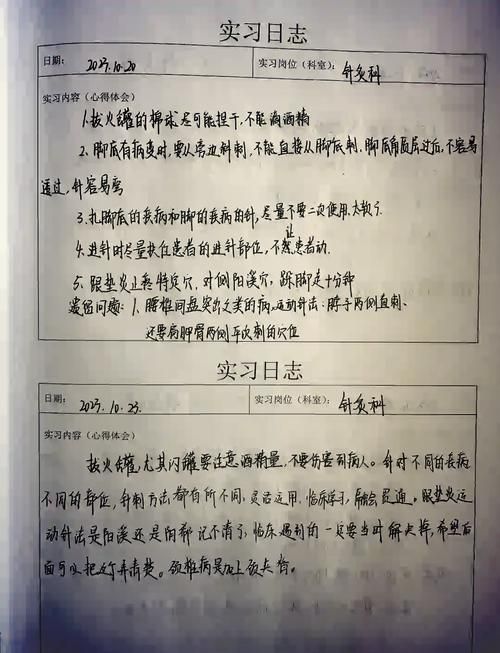 实习日志
日期： 2023.10.20 实习岗位（科室）： 针灸科
实习内容（心得体会）
1.拔火罐的棉球尽可能担干，不能滴酒精
2、脚底有病变时，要从旁边斜刺，不能直接从脚底刺．脚底角质层过后，不容易
透过，针容易弯
3.扎脚底的疾病和脚的疾病的针，尽量不要二次使用，太软了．
4.进针时尽量扶住患者的进针部位，不让患者动．
5、跟垫炎止疼特定穴，对侧阳溪穴，跺脚走十分钟
遗留问题：1、腰椎间盘突出之类的病，运动针法：脖子两侧直刺．
还要病胛骨两侧平次刺的穴位
实习日志
日期： 2023.10.23. 实习岗位（科室）： 针灸科
实习内容（心得体会）
拔火罐，尤其闪罐要注意酒精量，不要伤害到病人。针对不同的疾病
不同的部位，针刺方法都有所不同，灵活运用．临床学习，融会贯通。跟垫炎运
动针法是阳溪还是阳都记不清了，临床遇到的一定要当时解决掉，希望后
面可以把它弄清楚。颈椎病是